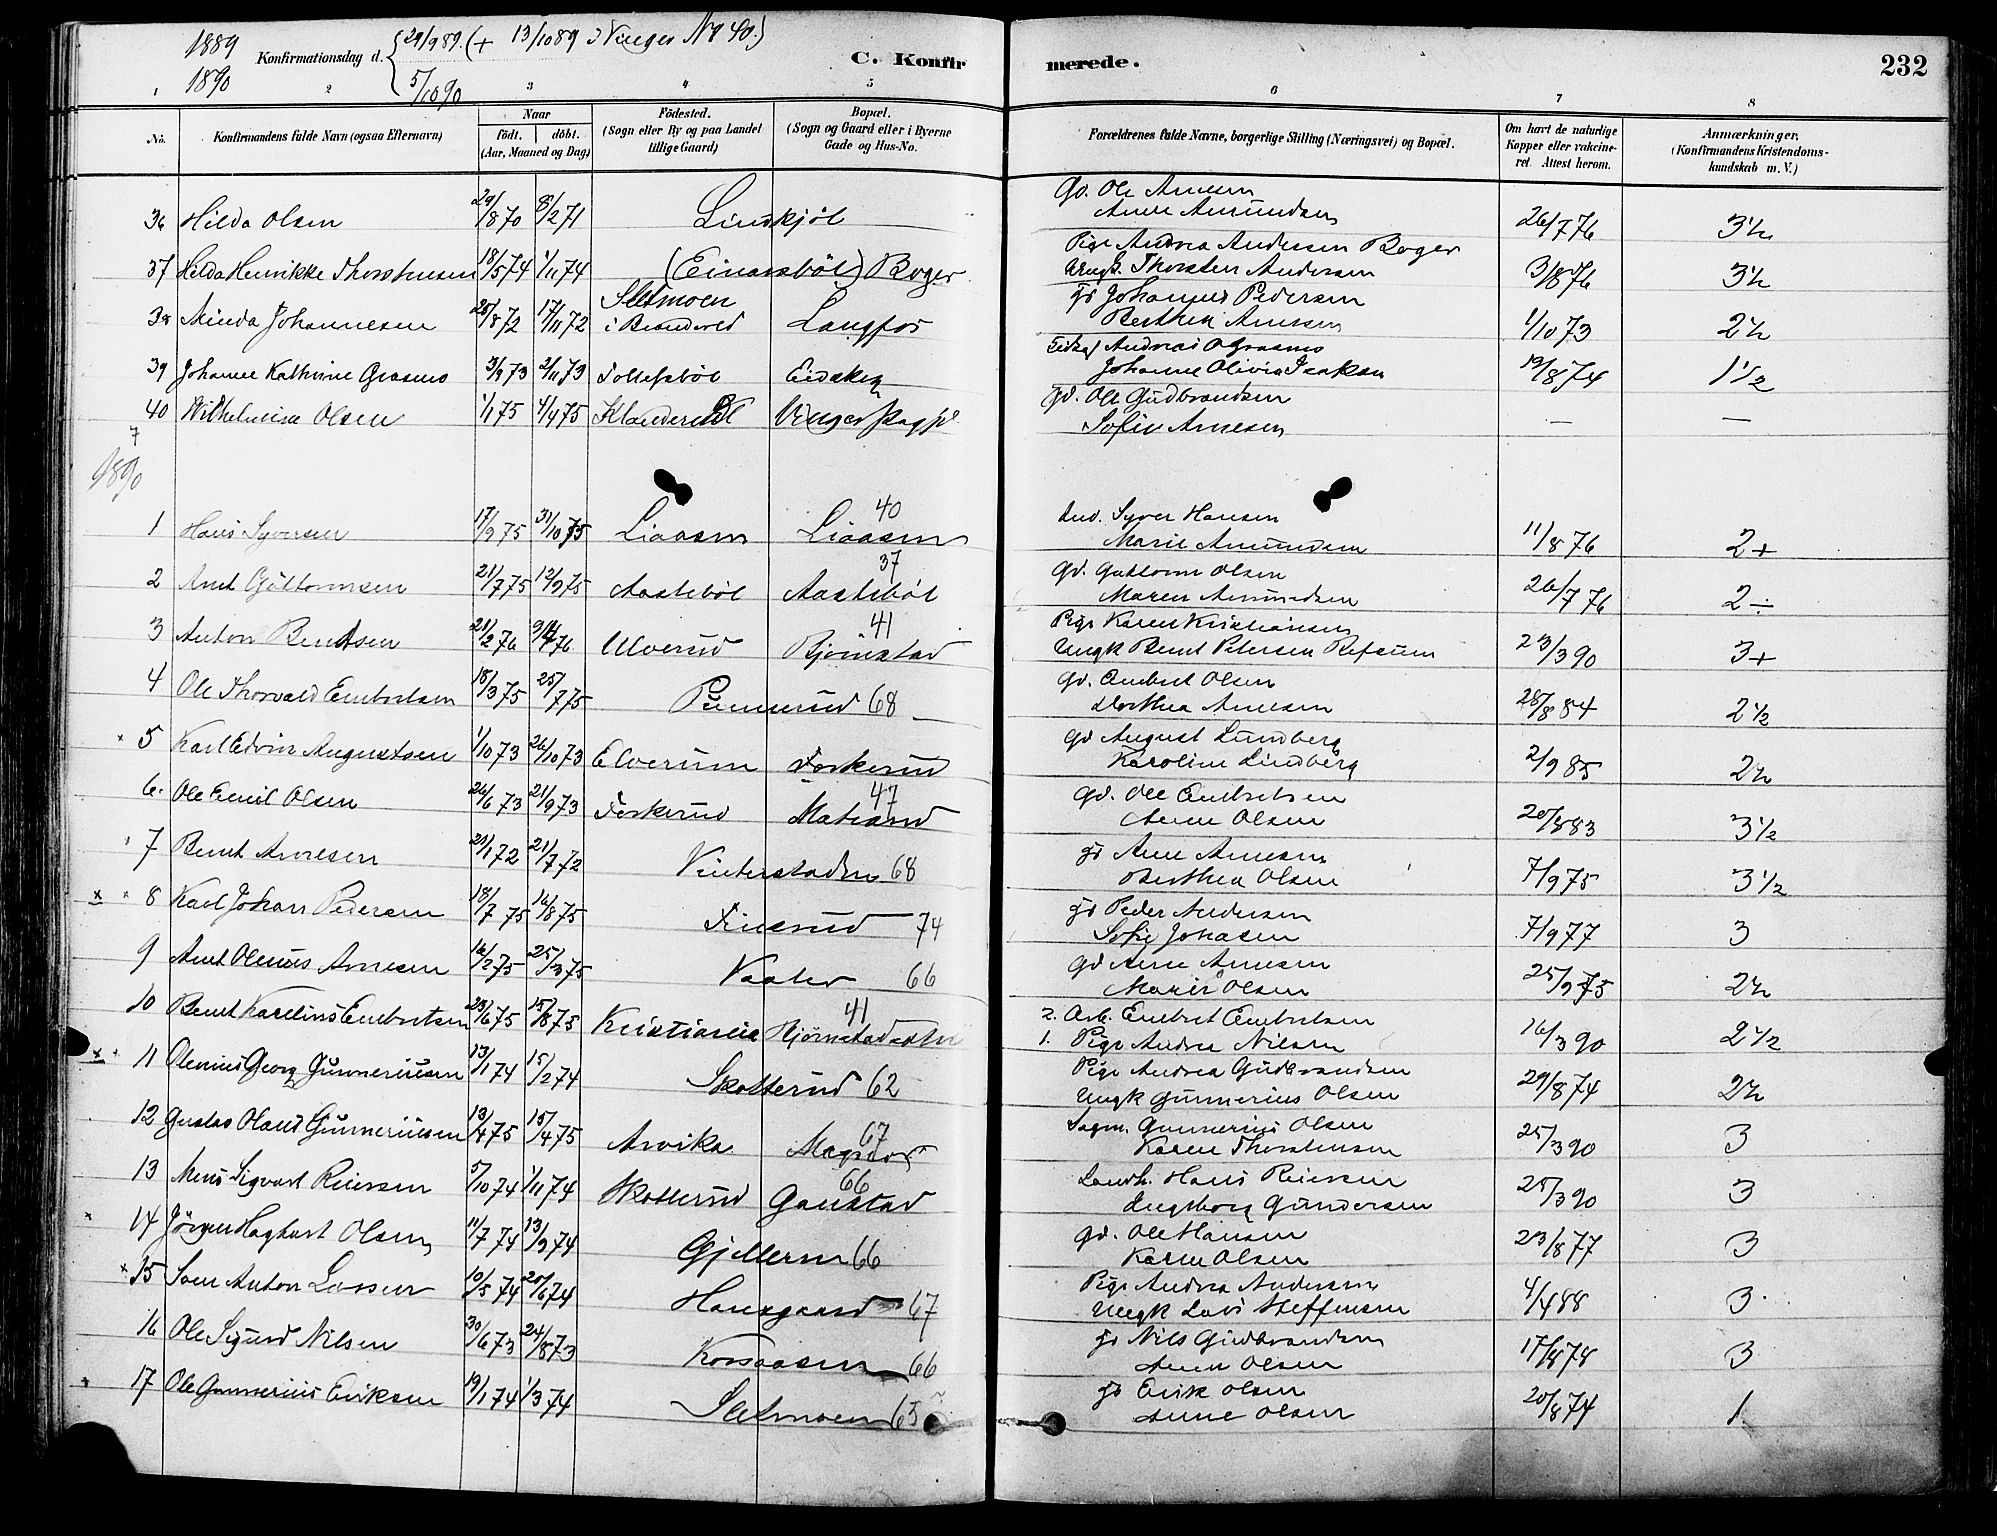 1889 Konfirmationsdag d. 29/9 89. (+ 13/10 89 i Vinger No 40.)
1890 5/10 90
C. Konfirmerede.
232
1 2 3 4 5 6 7 8
No. Konfirmandens fulde Navn (ogsaa Efternavn) Naar födt. döbt. (Aar, Maaned og Dag) Födested. (Sogn eller By og paa Landet tillige Gaard) Bopæl. (Sogn og Gaard eller i Byerne Gade og Hus-No. Forældrenes fulde Navne, borgerlige Stilling (Næringsvei) og Bopæl. Om havt de naturlige Kopper eller vakcineret. Attest herom. Anmærkninger. (Konfirmandens Kristendomskundskab m. V.)
Gd. Ole Arnesen
36 Hilda Olsen 29/8 70 8/2 71 Lindkjöl Anne Amundsen 26/7 76 3½
Pige Andrea Andersen Boger
37 Hilda Henrikke Thorstensen 18/5 74 1/11 74 (Einarsböl) Boger Ungk. Thorsten Andersen 3/8 76 3½
Sletmoen gd Johannes Pedersen
38 Minda Johannesen 28/8 72 17/11 72 i Brandvold Langfos Berthea Arnesen 1/10 73 2½
Andreas O Graasmo
39 Johanne Kathrine Grasmo 3/9 73 2/11 73 Tollefsböl Eidskog Johanne Olivia Isaksen 19/8 74 1½
gd. Ole Gudbrandsen
40 Wilhelmina Olsen 1/1 75 4/4 75 Vinger Sofie Arnesen — —
7
1890
1 Hans Syversen 17/9 75 31/10 75 Liaasen 40 Liaasen Ind. Syver Hansen
Marie Amundsen 11/8 76 2+
2 Arnt Guttormsen 21/7 75 12/9 75 Aasteböl 37 Aasteböl Gd. Guttorm Olsen
Maren Amundsen 26/7 76 2÷
3 Anton Berntsen 21/2 76 Ulverud 41 Bjørnstad Pige Karen Kristiansen
Ungk Bernt Petersen Refsum 23/3 90 3+
4 Ole Thorvald Embretsen 18/3 75 25/7 75 Pramerud 68 Gd. Embret Olsen
Dorthea Arnesen 28/8 84 2½
5 Karl Edvin Augustsen 1/10 73 26/10 73 Elverum Foskerud Gd August Lundberg
Karoline Lindberg 2/9 85 2½
6. Ole Emil Olsen 26/6 73 21/9 73 Foskerud 47 Matrand Gd. Ole Embretsen
Anne Olsen 20/8 83 3½
7 Bernt Arnesen 21/1 72 21/7 72 Vinterstaden 68 gd Arne Arnesen
Berthea Olsen 7/9 75 3½
8 Karl Johan Pedersen 18/7 75 16/8 75 Finsrud 74 gd Peder Andersen
Sofie Johasen 7/9 77 3
9 Arnt Olenius Arnesen 16/2 75 25/3 75 Vaaler 66 Gd Arne Arnesen
Maren Olsen 25/9 75 2½
10 Bernt Karelius Embretsen 23/6 75 15/8 75 Kristiania 41 Bjørnstad 2. Arb. Embret Embretsen
1. Pige Andrea Nilsen 16/3 90 2½
11 Olenius Georg Gunneriussen 13/1 74 15/2 74 Skotterud 62 Pige Andrea Gudbrandsen
Ungk Gunnerius Olsen 29/8 74 2½
12 Gustav Olaus Gunneriusen 13/4 75 15/4 75 Arvika 67 Magnor Sagm. Gunnerius Olsen
Karen Thorstensen 25/3 90 3
13 Mens Sigvart Reiersen 5/10 74 1/11 74 Skotterud 66 Gaustad Landh. Hans Reiersen
Ingeborg Gundersen 25/3 90 3
14 Jörgen Hagbart Olsen 11/7 74 13/9 74 Gjelleren 66 Gd. Ole Hansen
Karen Olsen 23/8 77 3
15 Anton Larsen 10/5 74 20/6 74 Hansgaard 67 Pige Andrea Andersen
Ungk Lars Steffensen 4/4 88 3
16 Ole Sigurd Nilsen 30/6 73 24/8 73 Korsaasen 66 gd Nils Gudbrandsen
Anne Olsen 17/8 78 3
17 Ole Gunnerius Eriksen 19/1 74 1/3 74 Sletmoen 65 gd Erik Olsen
Anne Olsen 20/8 74 1